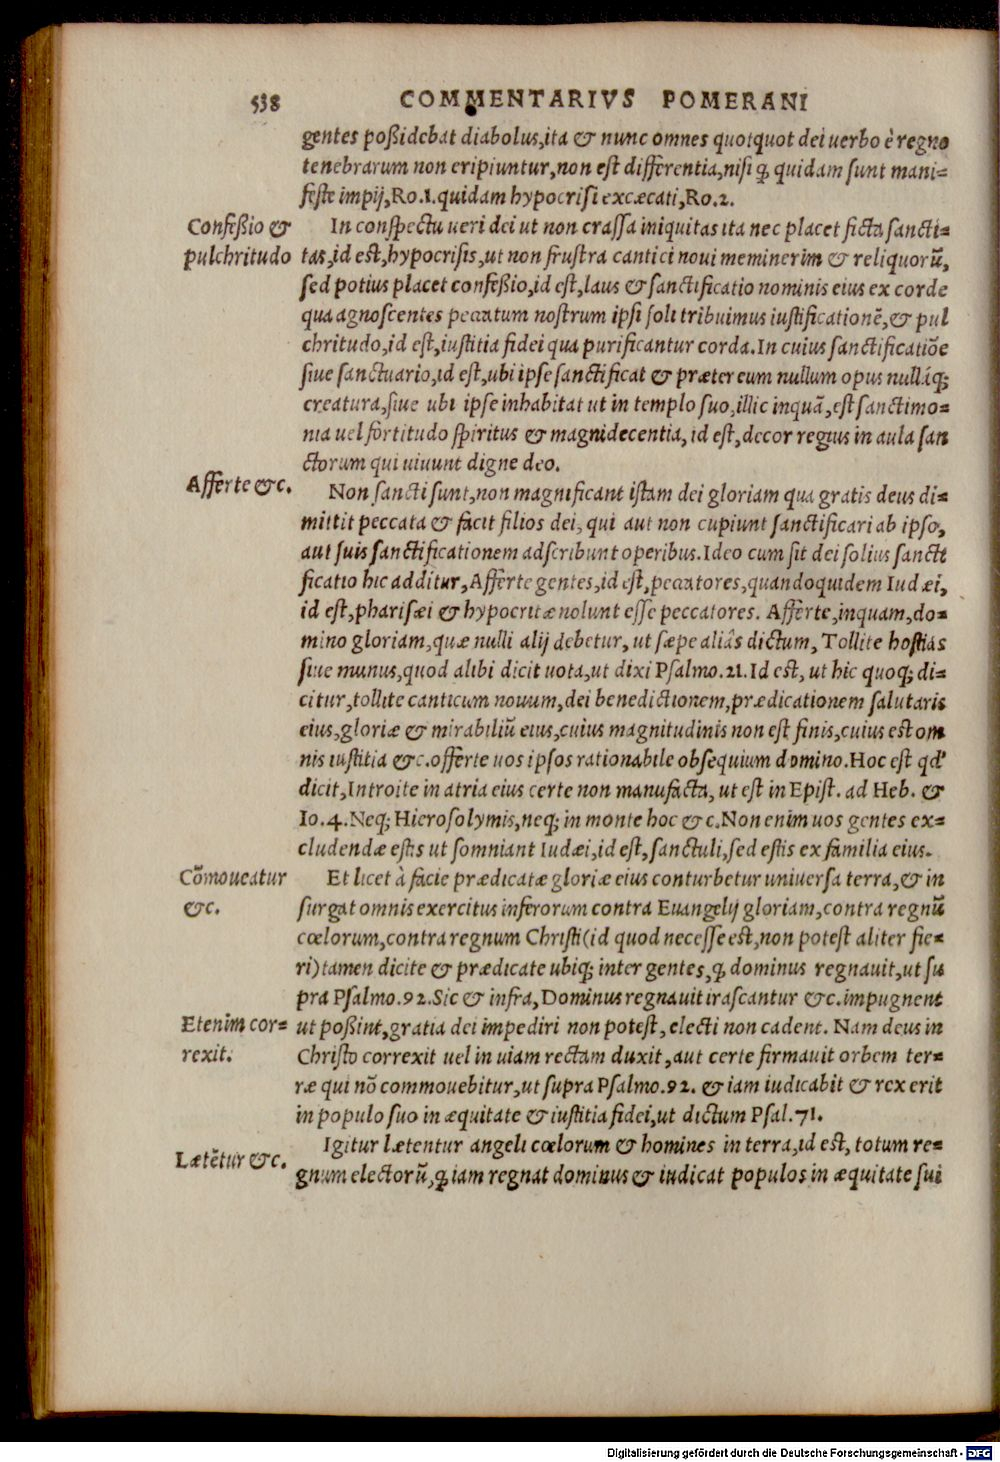 538 COMMENTARIVS POMERANI
gentes poßidebat diabolus,ita & nunc omnes quotquot dei uerbo è regno
tenebrarum non eripiuntur,non est differentia,nisi ꝙ quidam sunt mani=
feste impij,Ro.1.quidam hypocrisi excæcati,Ro.2.
Confeßio &
pulchritudo
In conspectu ueri dei ut non crassa iniquitas ita nec placet ficta sancti=
tas,id est,hypocrisis,ut non frustra cantici noui meminerim & reliquorũ,
sed potius placet confeßio,id est,laus & sanctificatio nominis eius ex corde
qua agnoscentes peccatum nostrum ipsi soli tribuimus iustificationẽ,& pul
chritudo,id est,iustitia fidei qua purificantur corda.In cuius sanctificatiõe
siue sanctuario,id est,ubi ipse sanctificat & præter eum nullum opus nulláq;
creatura,siue ubi ipse inhabitat ut in templo suo,illic inquã,est sanctimo=
nia uel fortitudo spiritus & magnidecentia,id est,decor regius in aula san
ctorum qui uiuunt digne deo.
Afferte &c.
Non sancti sunt,non magnificant istam dei gloriam qua gratis deus di=
mittit peccata & facit filios dei, qui aut non cupiunt sanctificari ab ipso,
aut suis sanctificationem adscribunt operibus.Ideo cum sit dei solius sancti
ficatio hic additur,Afferte gentes,id est,peccatores,quandoquidem Iudæi,
id est,pharisæi & hypocritæ nolunt esse peccatores. Afferte,inquam,do=
mino gloriam,quæ nulli alij debetur, ut sæpe aliâs dictum, Tollite hostias
siue munus,quod alibi dicit uota,ut dixi Psalmo.21.Id est, ut hic quoq; di=
citur,tollite canticum nouum,dei benedictionem,prædicationem salutaris
eius,gloriæ & mirabiliũ eius,cuius magnitudinis non est finis,cuius est om
nis iustitia &c.offerte uos ipsos rationabile obsequium domino.Hoc est qd'
dicit,Introite in atria eius certe non manufacta, ut est in Epist. ad Heb. &
Io.4.Neq; Hierosolymis,neq; in monte hoc &c.Non enim uos gentes ex=
cludendæ estis ut somniant Iudæi,id est,sanctuli,sed estis ex familia eius.
Cõmoueatur
&c.
Et licet à facie prædicatæ gloriæ eius conturbetur uniuersa terra,& in
surgat omnis exercitus inferorum contra Euangelij gloriam,contra regnũ
cœlorum,contra regnum Christi(id quod necesse est,non potest aliter fie=
ri)tamen dicite & prædicate ubiq; inter gentes,ꝙ dominus regnauit,ut su
pra Psalmo.92.Sic & infra,Dominus regnauit irascantur &c.impugnent
Etenim cor=
rexit.
ut poßint,gratia dei impediri non potest,electi non cadent. Nam deus in
Christo correxit uel in uiam rectam duxit,aut certe firmauit orbem ter=
ræ qui nõ commouebitur,ut supra Psalmo.92. & iam iudicabit & rex erit
in populo suo in æquitate & iustitia fidei,ut dictum Psal.71.
Lætẽtur &c.
Igitur lætentur angeli cœlorum & homines in terra,id est, totum re=
gnum electorũ,ꝙ iam regnat dominus & iudicat populos in æquitate sui
Digitalisierung gefördert durch die Deutsche Forschungsgemeinschaft - DFG